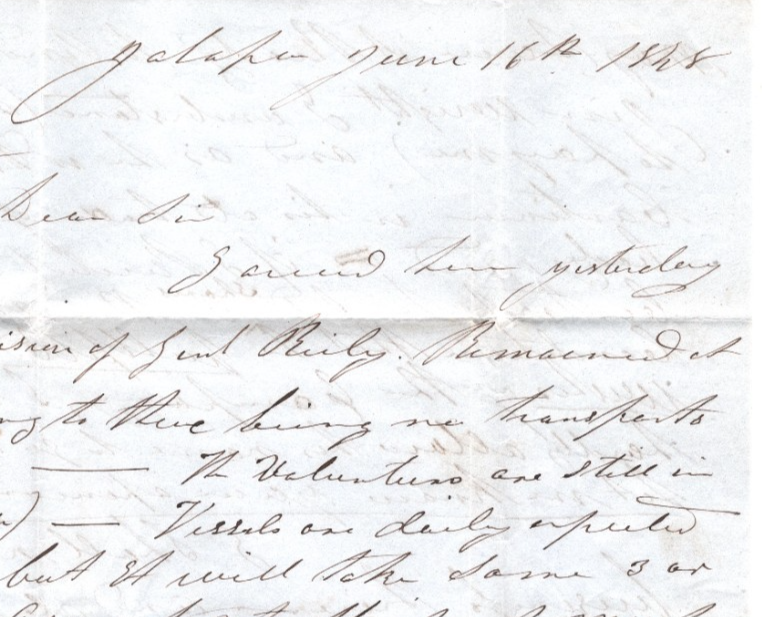 Jalapa June 16th 1848
Dear Sir
I arrived here yesterday
ision of Genl Reily. Remained at
ng to there being no transports
— The Volunteers are still in
) — Vessels are daily expected
but it will take some 3 or